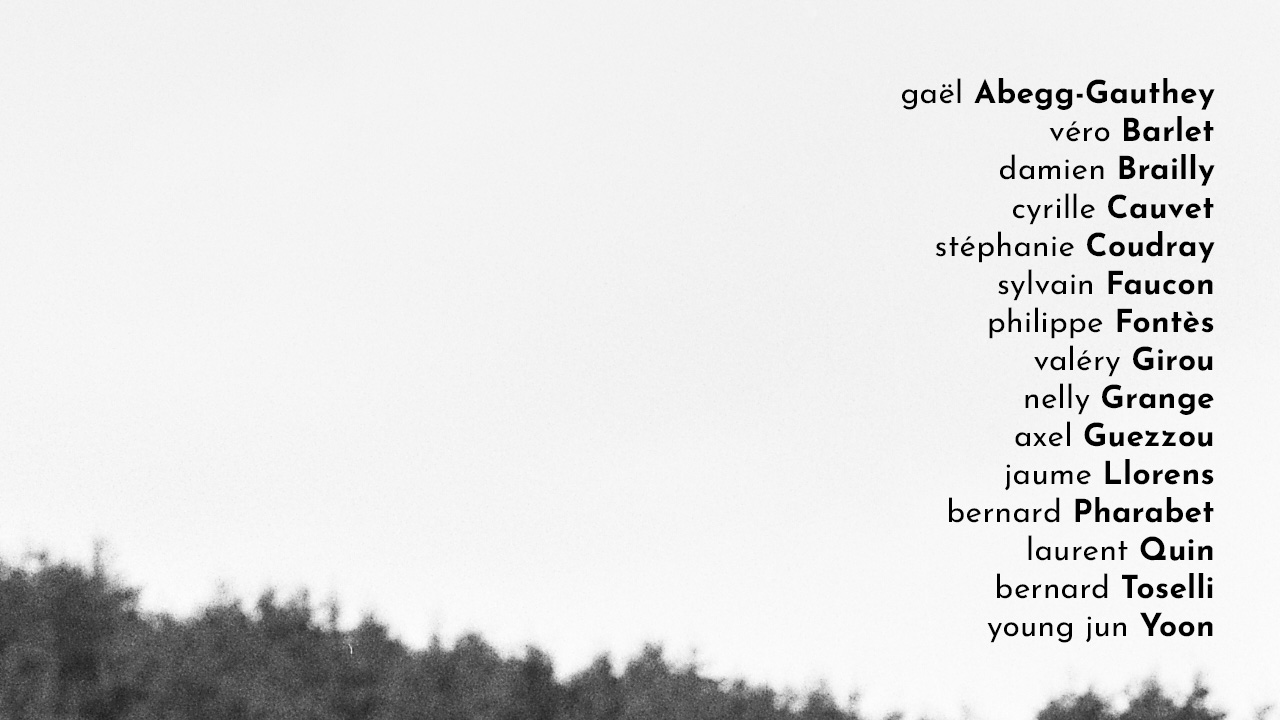 gaël Abegg-Gauthey
véro Barlet
damien Brailly
cyrille Cauvet
stéphanie Coudray
sylvain Faucon
philippe Fontès
valéry Girou
nelly Grange
axel Guezzou
jaume Llorens
bernard Pharabet
laurent Quin
bernard Toselli
young jun Yoon